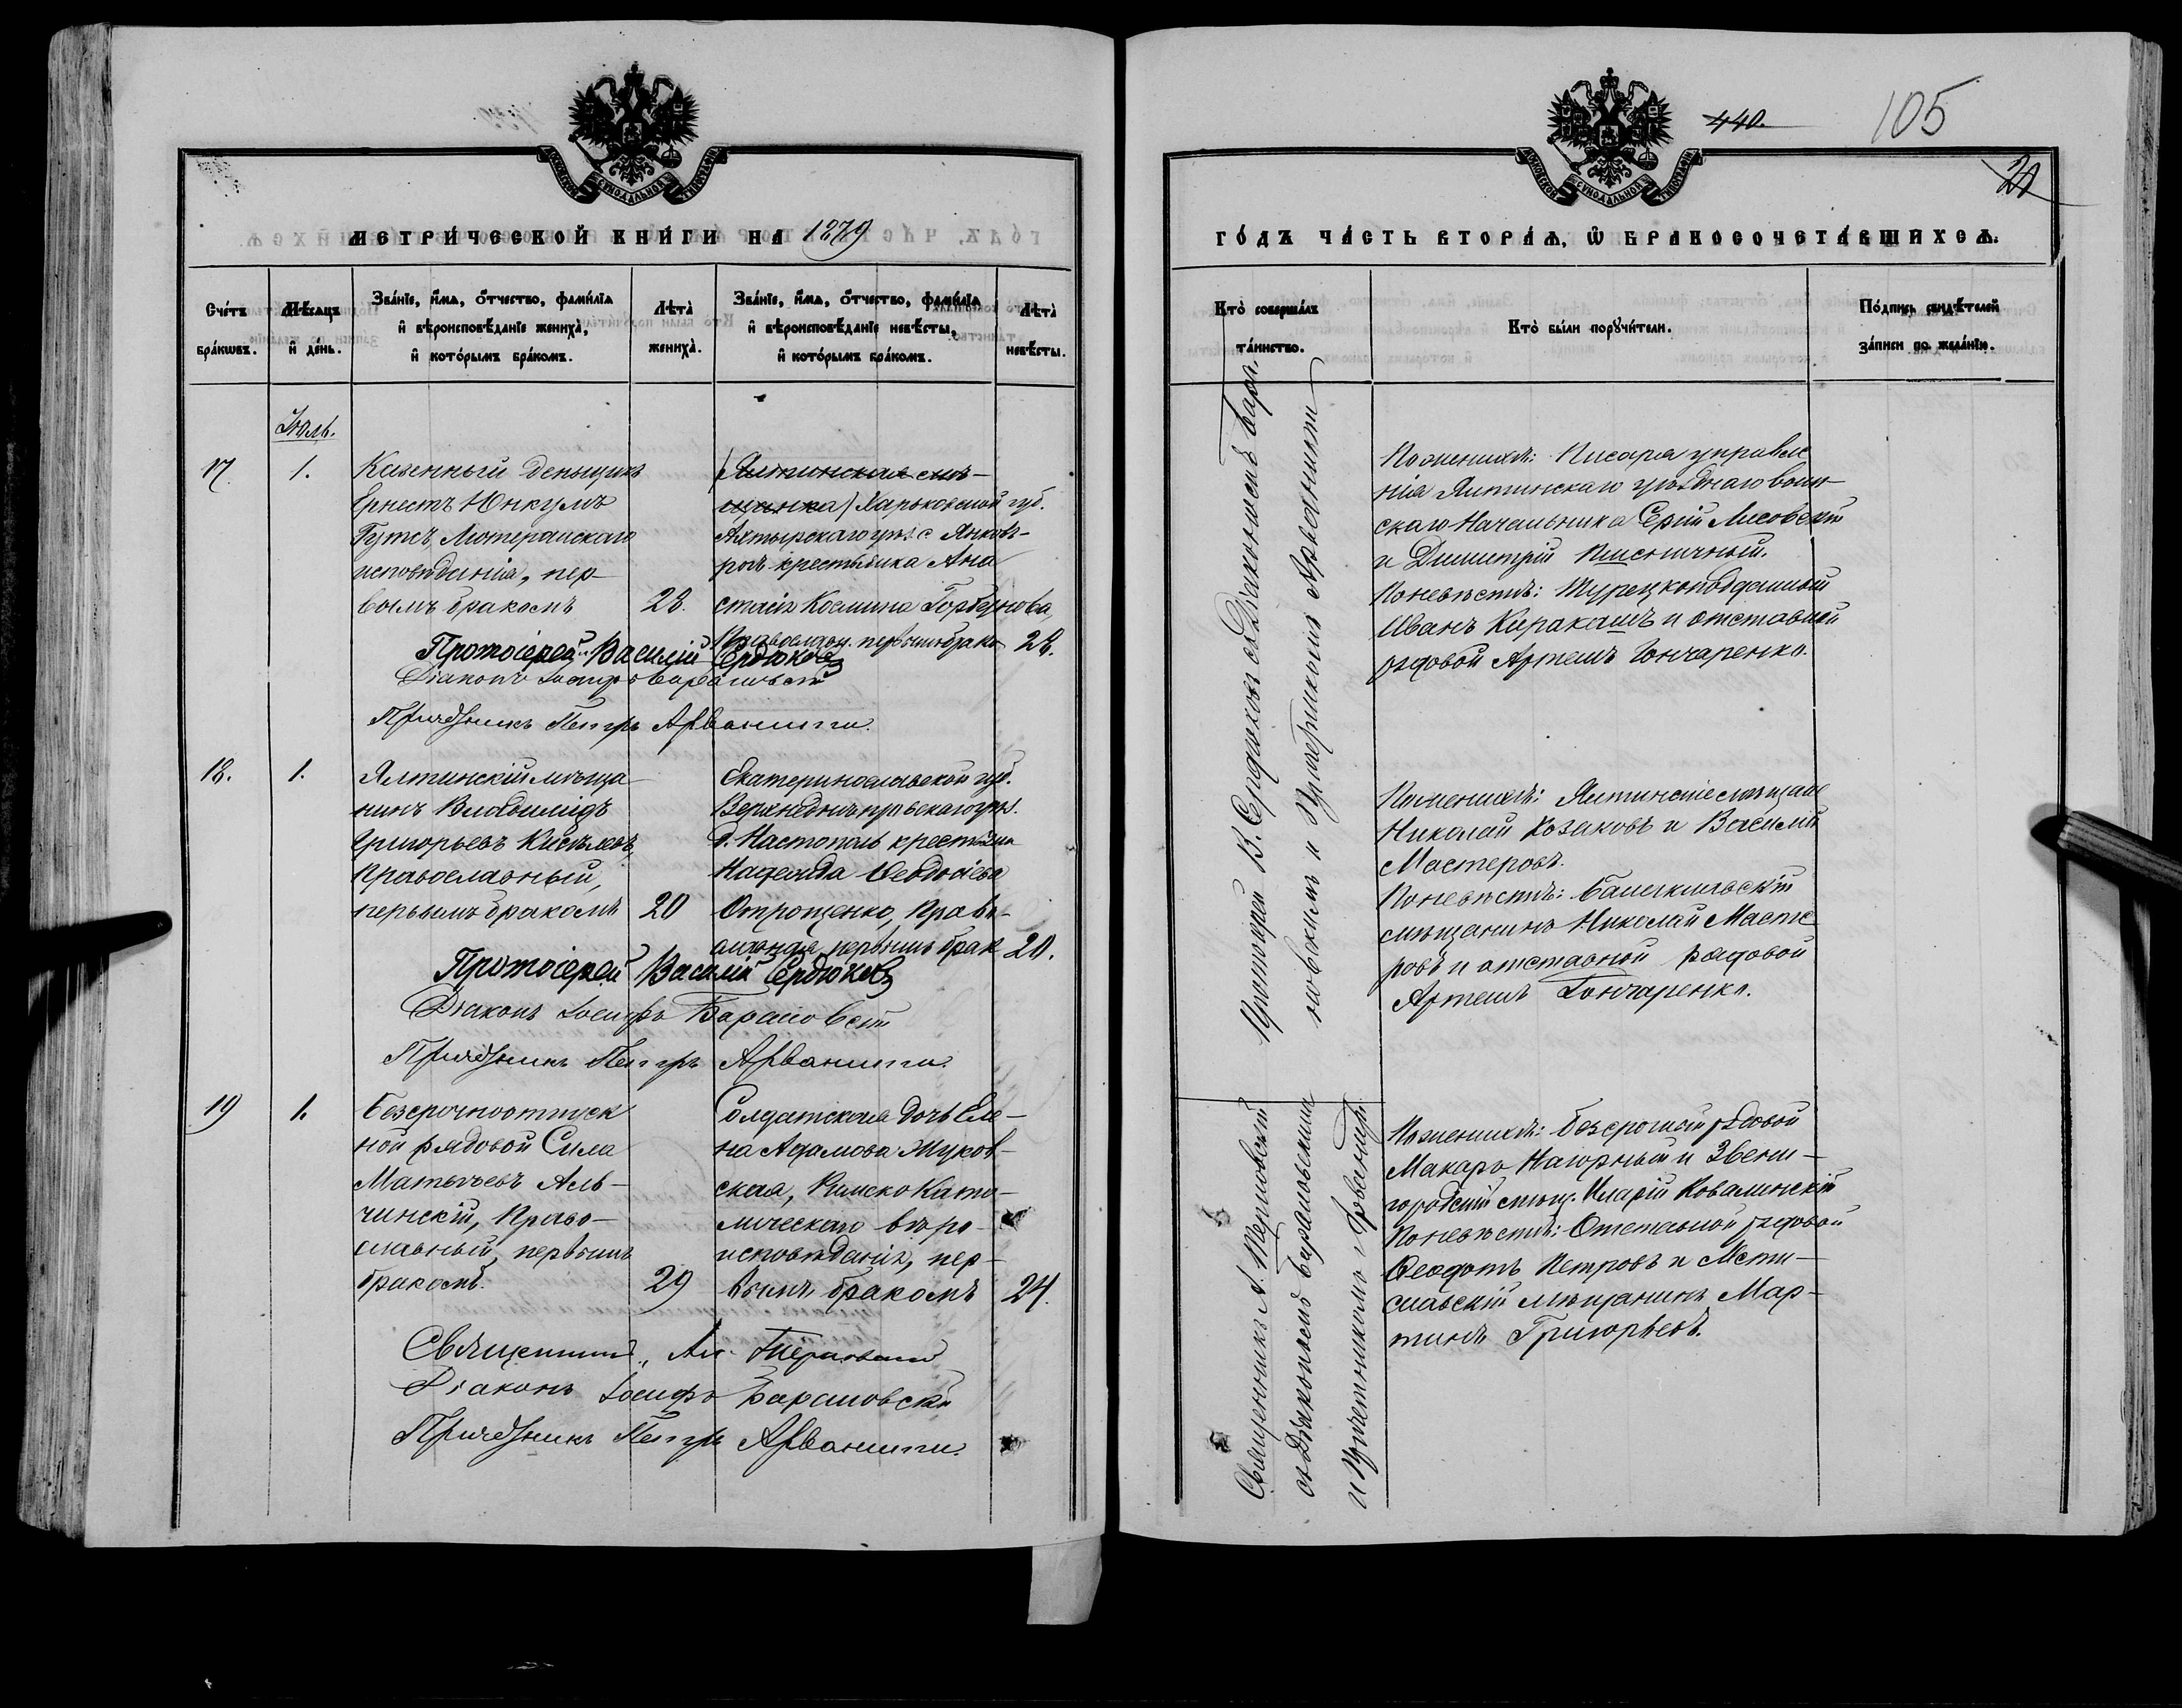 МОСКОВСКОЙ СѴНОДАЛЬНОЙ ТѴПОГРАФІИ
МЕТРИ́ЧЕСКОЙ КНИ́ГИ НА 1879
Сче́тъ бра́кѡвъ.
Мѣ́сяцъ и҆ де́нь.
Зва́нїе, и҆́мѧ, ѻ҆́тчество, фами́лїѧ
и҆ вѣроисповѣ́данїе жениха̀,
и҆ кото́рымъ бра́комъ.
Лѣта̀ жениха̀.
Зва́нїе, и҆́мѧ, ѻ҆́тчество, фами́лїѧ
и҆ вѣроисповѣ́данїе невѣ́сты,
и҆ кото́рымъ бра́комъ.
Лѣта̀ невѣ́сты.
Іюль.
17. 1.
Казенный деньщикъ
Ернестъ Юнкумъ
Гутсъ Лютеранскаго
исповѣданія, пер-
вымъ бракомъ 28.
(Ялтинская мѣ-
щанка) Харьковской губ.
Ахтырскаго уѣз. с Янков-
рогъ крестьянка Ана
стасія Космина Горбунова,
Православн. первымъ брако 28.
Протоіерей Василій Сердюковъ
Діаконъ Іосифъ Барановскій
Причетникъ Петръ Арванити.
18. 1.
Ялтинскій мѣща
нинъ Владимідъ
Григорьевъ Киселевъ,
Православный,
первымъ бракомъ 20
Екатеринославской губ.
Верхнеднѣпровскаго уѣз.
д. Настополь крестьянка
Надежда Ѳеодосіева
Отрощенко, Право-
славная, первымъ брак 20.
Протоіерей Василій Сердюковъ
Діаконъ Іосифъ Барановскій
Причетникъ Петръ Арванити.
19 1.
Безсрочноотпуск
ной рядовой Сила
Матвѣевъ Аль-
чинскій, Право-
славный, первымъ
бракомъ. 29
Солдатская дочь Еле-
на Адамова Жуков-
ская, Римско Като-
лическаго вѣро-
исповѣданія, пер-
вымъ бракомъ 24.
Священникъ Ал. Терновскій
Діаконъ Іосифъ Барановскій
Причетникъ Петръ Арванити.
440.
105
МОСКОВСКОЙ СѴНОДАЛЬНОЙ ТѴПОГРАФІИ
ГО́ДЪ ЧА́СТЬ ВТОРА́Ѧ, Ѡ҆ БРАКОСОЧЕТА́ВШИХСѦ.
Кто̀ соверша́лъ та́инство.
Кто̀ бы́ли порꙋчи́тели.
По́дпись свидѣ́телей
за́писи по жела́нїю.
Протоіерей В. Сердюковъ съ Діакономъ Бара
новскимъ и Причетникомъ Арванити
По женихѣ: Писаря управле
нія Ялтинскаго уѣзднаго воин-
скаго Начальника Сергій Лисовскій
и Димитрій Пшеничный.
По невѣстѣ: Турецкоподданный
Иванъ Каракашъ и отставной
рядовой Артемъ Гончаренко.
По женихѣ: Ялтинскіе мѣщане
Николай Козаковъ и Василій
Мастеровъ.
По невѣстѣ:
мѣщанинъ Николай Масте
ровъ и отставной рядовой
Артемъ Гончаренко.
Священникъ А. Терновскій
съ Діакономъ Барановскимъ
и Причетникомъ Арванити.
По женихѣ: безсрочный рядовой
Макаръ Нагорный и Звени-
городскій мѣщ. Иларій Ковалинскій
По невѣстѣ: Отставной рядовой
Ѳеодотъ Петровъ и Мсти-
славскій мѣщанинъ Мар-
тинъ Григорьевъ.